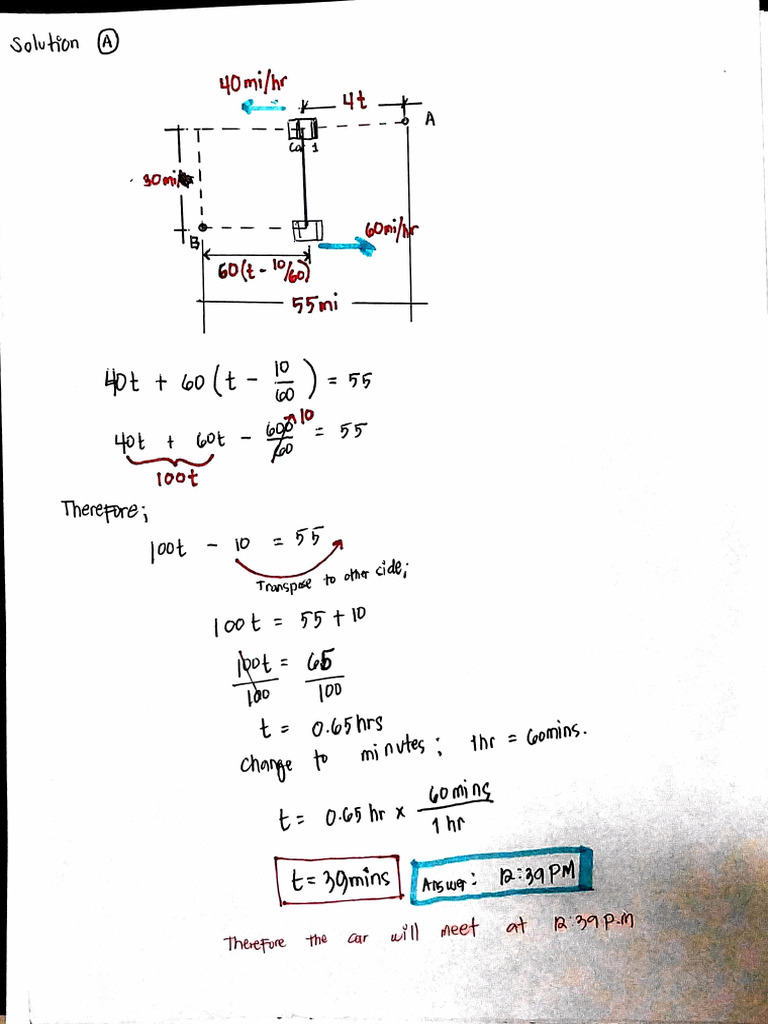 Solution Ⓐ
40mi/hr
4t
A
Car 1
30mi
60mi/hr
B
60(t - 10/60)
55mi
40t + 60(t - 10/60) = 55
40t + 60t - 600/60 = 55
10
100t
Therefore;
100t - 10 = 55
Transpose to other cide;
100t = 55 + 10
100t/100 = 65/100
t = 0.65hrs
change to minutes; 1hr = 60mins.
t = 0.65 hr x 60mins/1 hr
t = 39mins
Answer: 12:39PM
Therefore the car will meet at 12:39 p.m